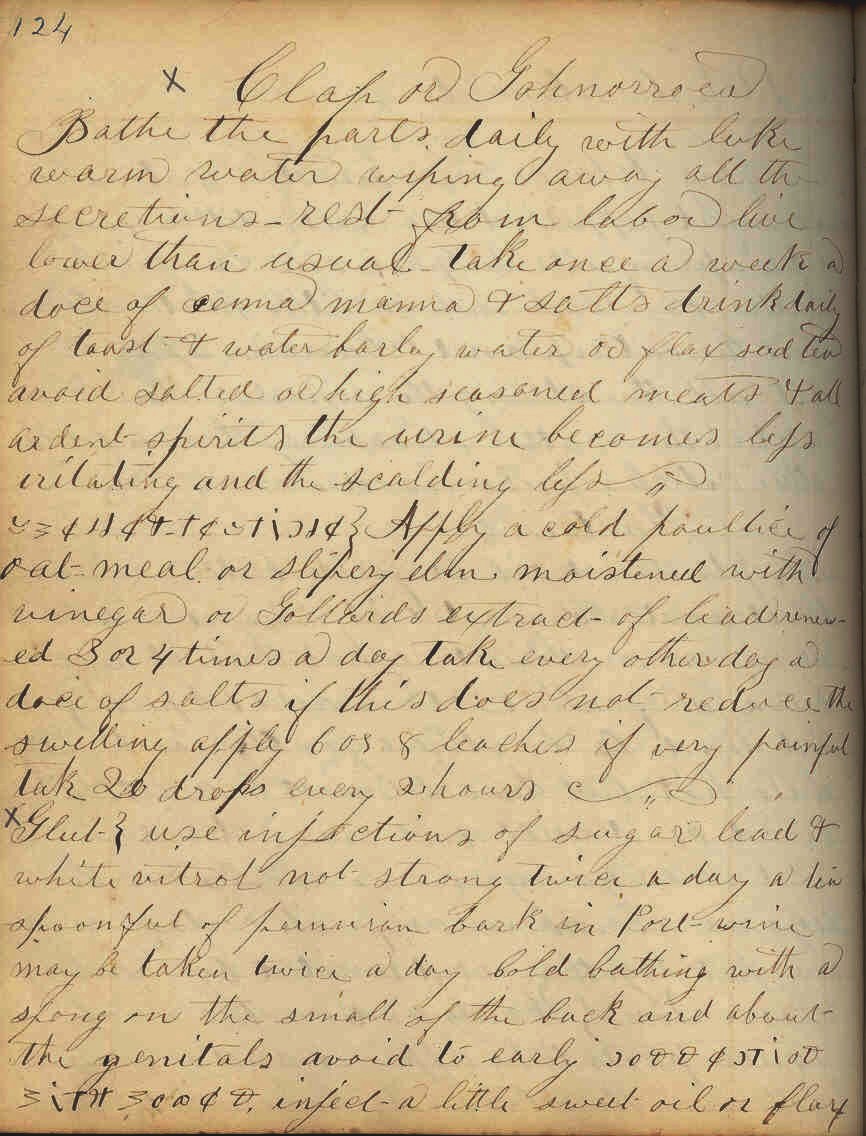 124
x Clap or Gohnorroea
Bathe the parts daily with luke
warm water wiping away all the
secretions - rest from labor live
lower than usual - take once a week a
doce of cenna manna & salts drink daily
of toast & water barley water or flax seed tea
avoid salted or high seasoned meats & all
ardent spirits the urine becomes less
iritating and the scalding less
Apply a cold poultice of
oat-meal or slipery elm moistened with
vinegar or Gollards extract of lead renew-
ed 3 or 4 times a day take every other day a
doce of salts if this does not reduce the
swelling apply 6 or 8 leaches if very painful
take 20 drops every 2 hours
x Glut } use injections of sugar lead &
white vitrol not strong twice a day a tea
spoonful of peruvian bark in Port-wine
may be taken twice a day cold bathing with a
spong on the small of the back and about
the genitals avoid to early
inject a little sweet oil or flax